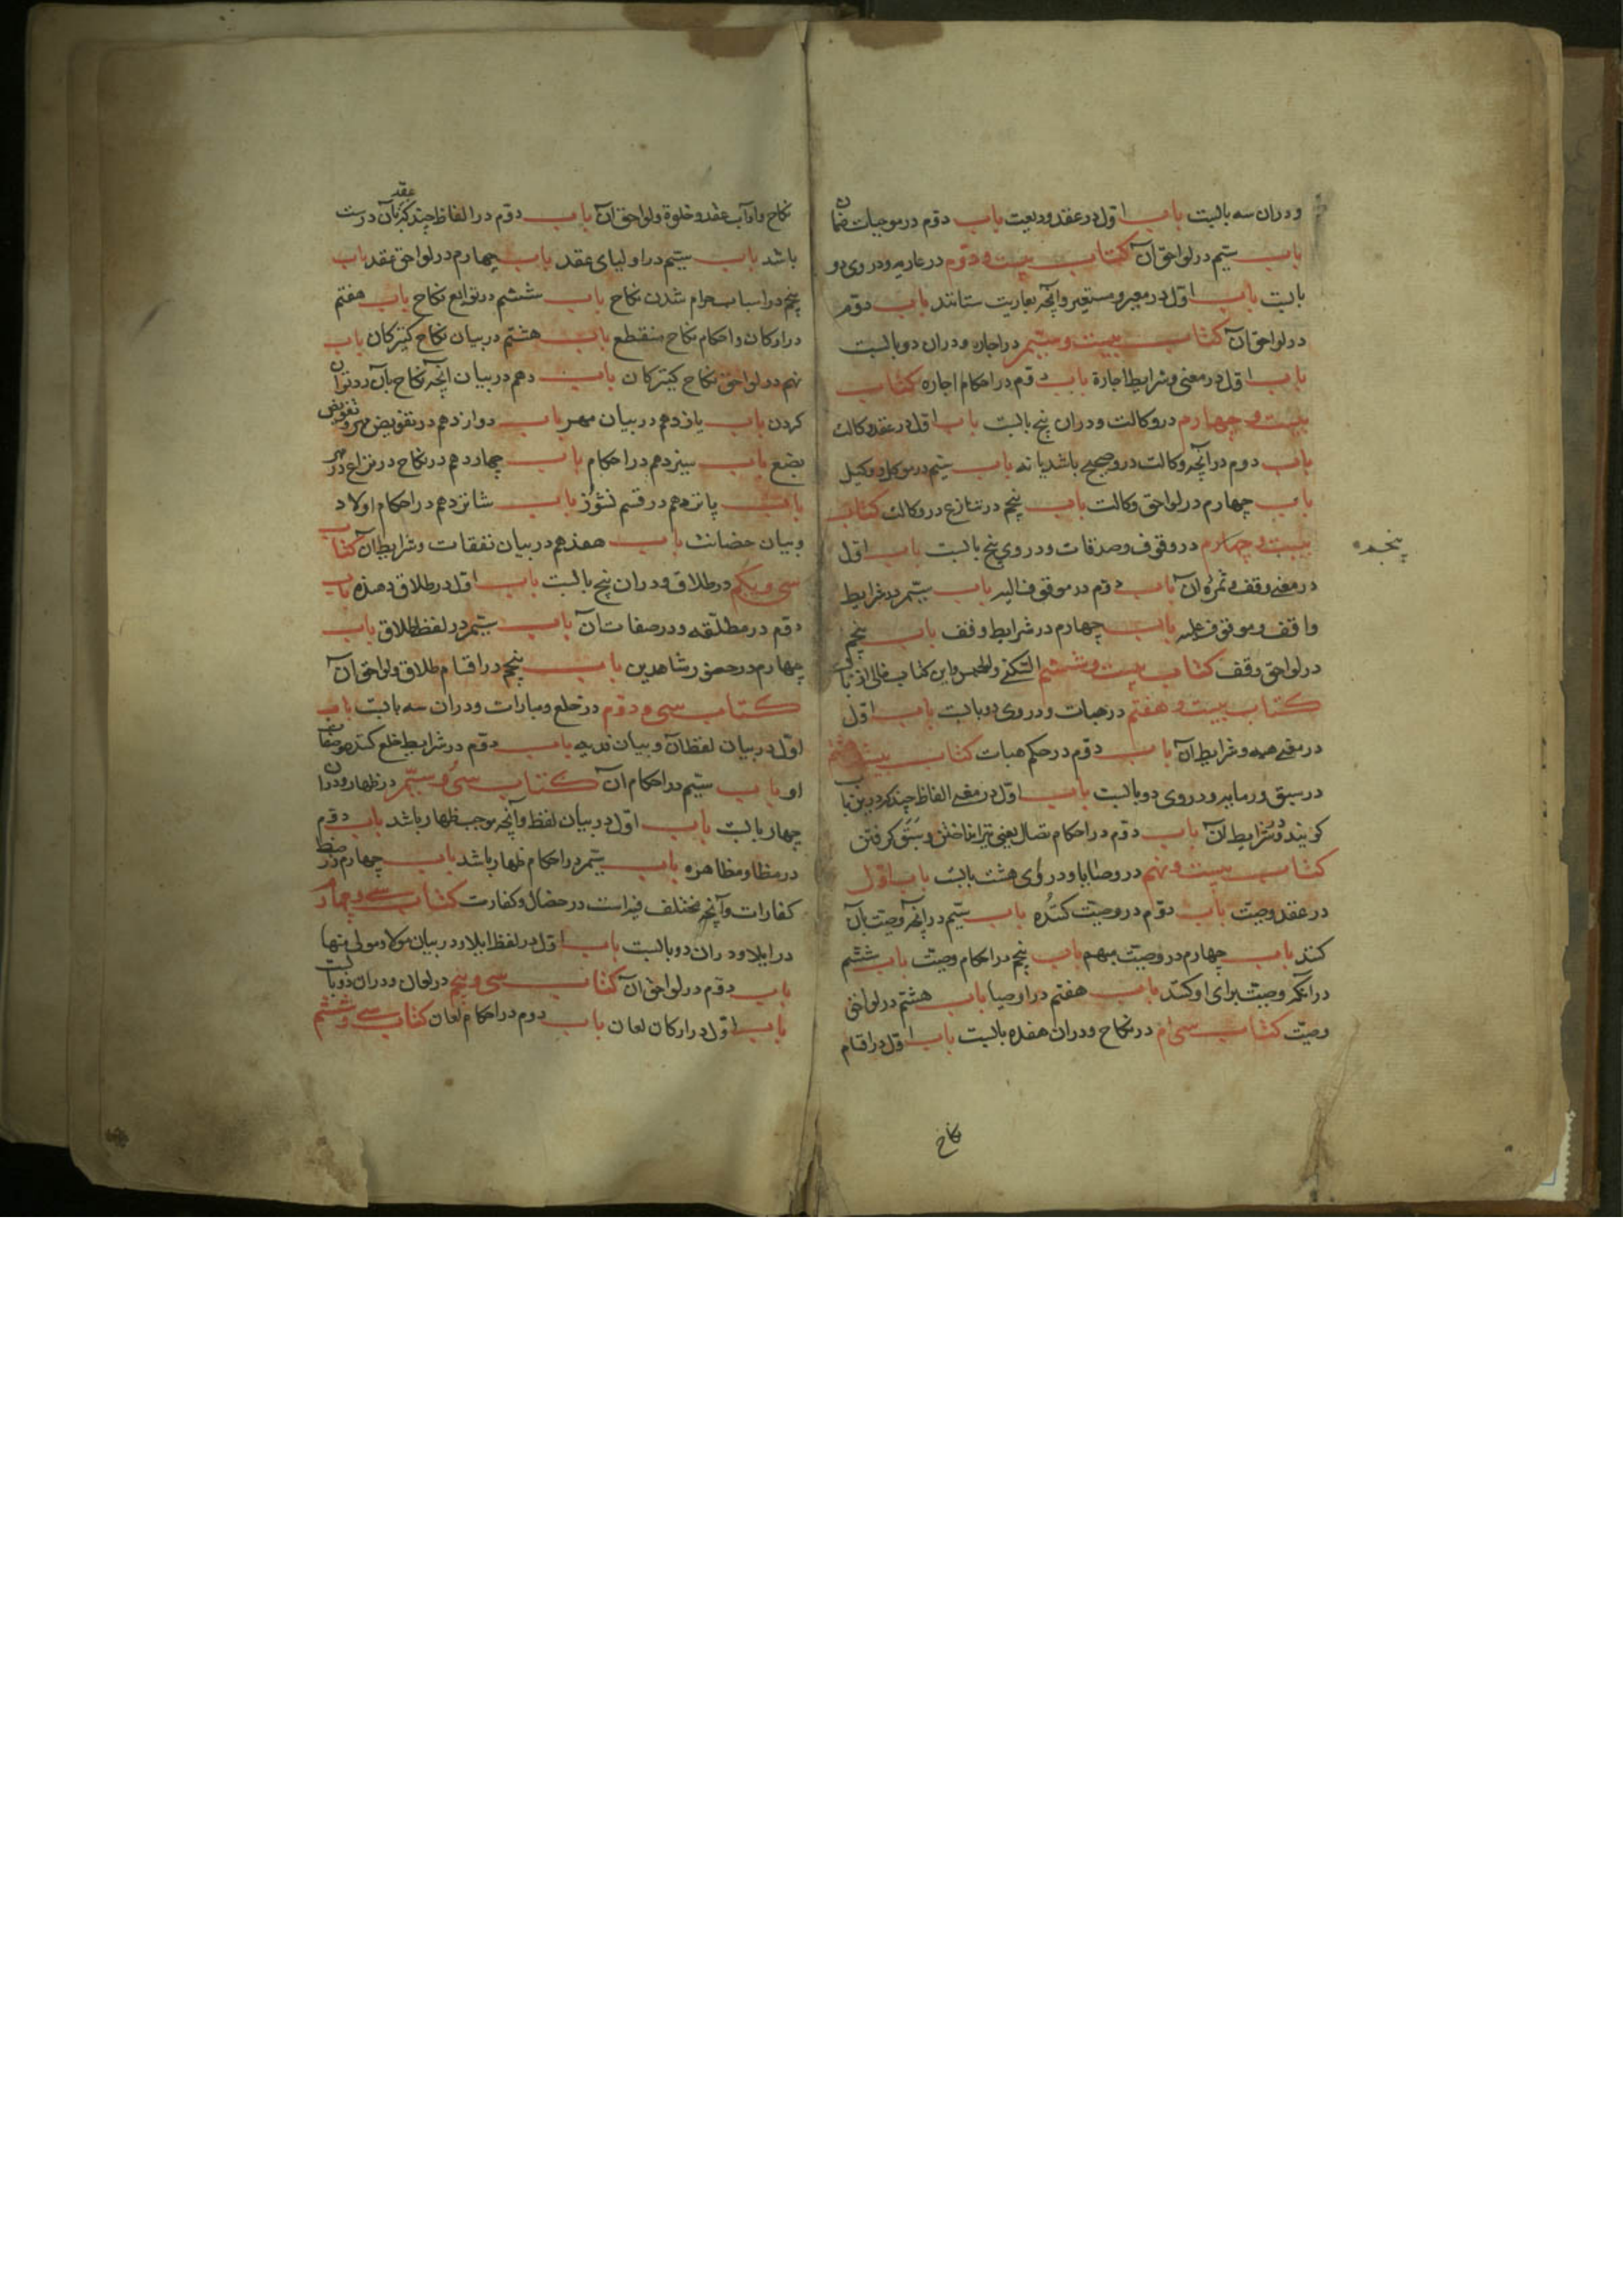 ودران سه بابست باب اول در عقد ودیعت باب دوم در موجبات ضمان
باب سیّم در لواحق آن کتاب بیست و دوّم در عاریه ودر وی دو
بابست باب اول در معیر و مستعیر وآنچه بعاریت ستانند باب دوّم
در لواحق آن کتاب بیست و سیّم در اجاره ودران دو بابست
باب اول در معنی و شرایط اجارة باب دوم در احکام اجاره کتاب
بیست و چهارم در وکالت ودران پنج بابست باب اول در عقد وکالت
باب دوم در آنچه وکالت درو صحیح باشد یا نه باب سیّم در موکل و وکیل
باب چهارم در لواحق وکالت باب پنجم در تنازع در وکالت کتاب
بیست و چهارم در وقوف وصدقات ودر وی پنج بابست باب اول
پنجم
در معنی وقف و ثمره آن باب دوم در موقوف الیه باب سیّم در شرایط
واقف و موقوف علیه باب چهارم در شرایط وقف باب پنجم
در لواحق وقف کتاب بیست و ششم السکنی والحبس واین کتاب خالی از باب
کتاب بیست و هفتم در هبات ودر وی دو بابست باب اول
در معنی هبه و شرایط آن باب دوّم در حکم هبات کتاب بیست هشتم
در سبق ورمایه ودر وی دو بابست باب اول در معنی الفاظ چند که درین باب
گویند و شرایط آن باب دوم در احکام نضال یعنی تیر انداختن و سَبَق گرفتن
کتاب بیست و نهم در وصایا ودر وی هشت بابست باب اول
در عقد وصیّت باب دوّم در وصیّت کننده باب سیّم در آنچه وصیّت بآن
کنند باب چهارم در وصیّت مبهم باب پنجم در احکام وصیّت باب ششم
در آنکه وصیّت برای او کنند باب هفتم در اوصیا باب هشتم در لواحق
وصیّت کتاب سی ام در نکاح ودران هفده بابست باب اول در اقسام
نکاح
نکاح وآداب عقد وخلوة ولواحق آن باب دوّم در الفاظ چند که عقد بآن درست
باشد باب سیّم در اولیای عقد باب چهارم در لواحق عقد باب
پنجم در اسباب حرام شدن نکاح باب ششم در توابع نکاح باب هفتم
در ارکان واحکام نکاح منقطع باب هشتم در بیان نکاح کنیزکان باب
نهم در لواحق نکاح کنیزکان باب دهم در بیان آنچه نکاح بآن رد توان
کردن باب یازدهم در بیان مهر باب دوازدهم در تفویض مهر و تفویض
بضع باب سیزدهم در احکام باب چهاردهم در نکاح در نزاع در مهر
باب پانزدهم در قسم نشوز باب شانزدهم در احکام اولاد
وبیان حضانت باب هفدهم در بیان نفقات وشرایط آن کتاب
سی و یکم در طلاق ودران پنج بابست باب اول در طلاق دهنده باب
دوم در مطلّقه ودر صفات آن باب سیّم در لفظ طلاق باب
چهارم در حضور شاهدین باب پنجم در اقسام طلاق ولواحق آن
کتاب سی و دوّم در خلع ومبارات ودران سه بابست باب
اوّل در بیان لفظ آن وبیان فدیه باب دوّم در شرایط خلع کننده وصفات
او باب سیّم در احکام آن کتاب سی و سیّم در ظهار ودران
چهار بابست باب اوّل در بیان لفظ وآنچه موجب ظهار باشد باب دوّم
در مظاهر و مظاهره باب سیّم در احکام ظهار باشد باب چهارم در
کفارات وآنچه مختلف فیه است در خصال وکفارت کتاب سی و چهارم
در ایلا ودران دو بابست باب اول در لفظ ایلا ودر بیان مولا ومولی منها
باب دوّم در لواحق آن کتاب سی و پنجم در لعان ودران دو بابست
باب اوّل در ارکان لعان باب دوم در احکام لعان کتاب سی و ششم